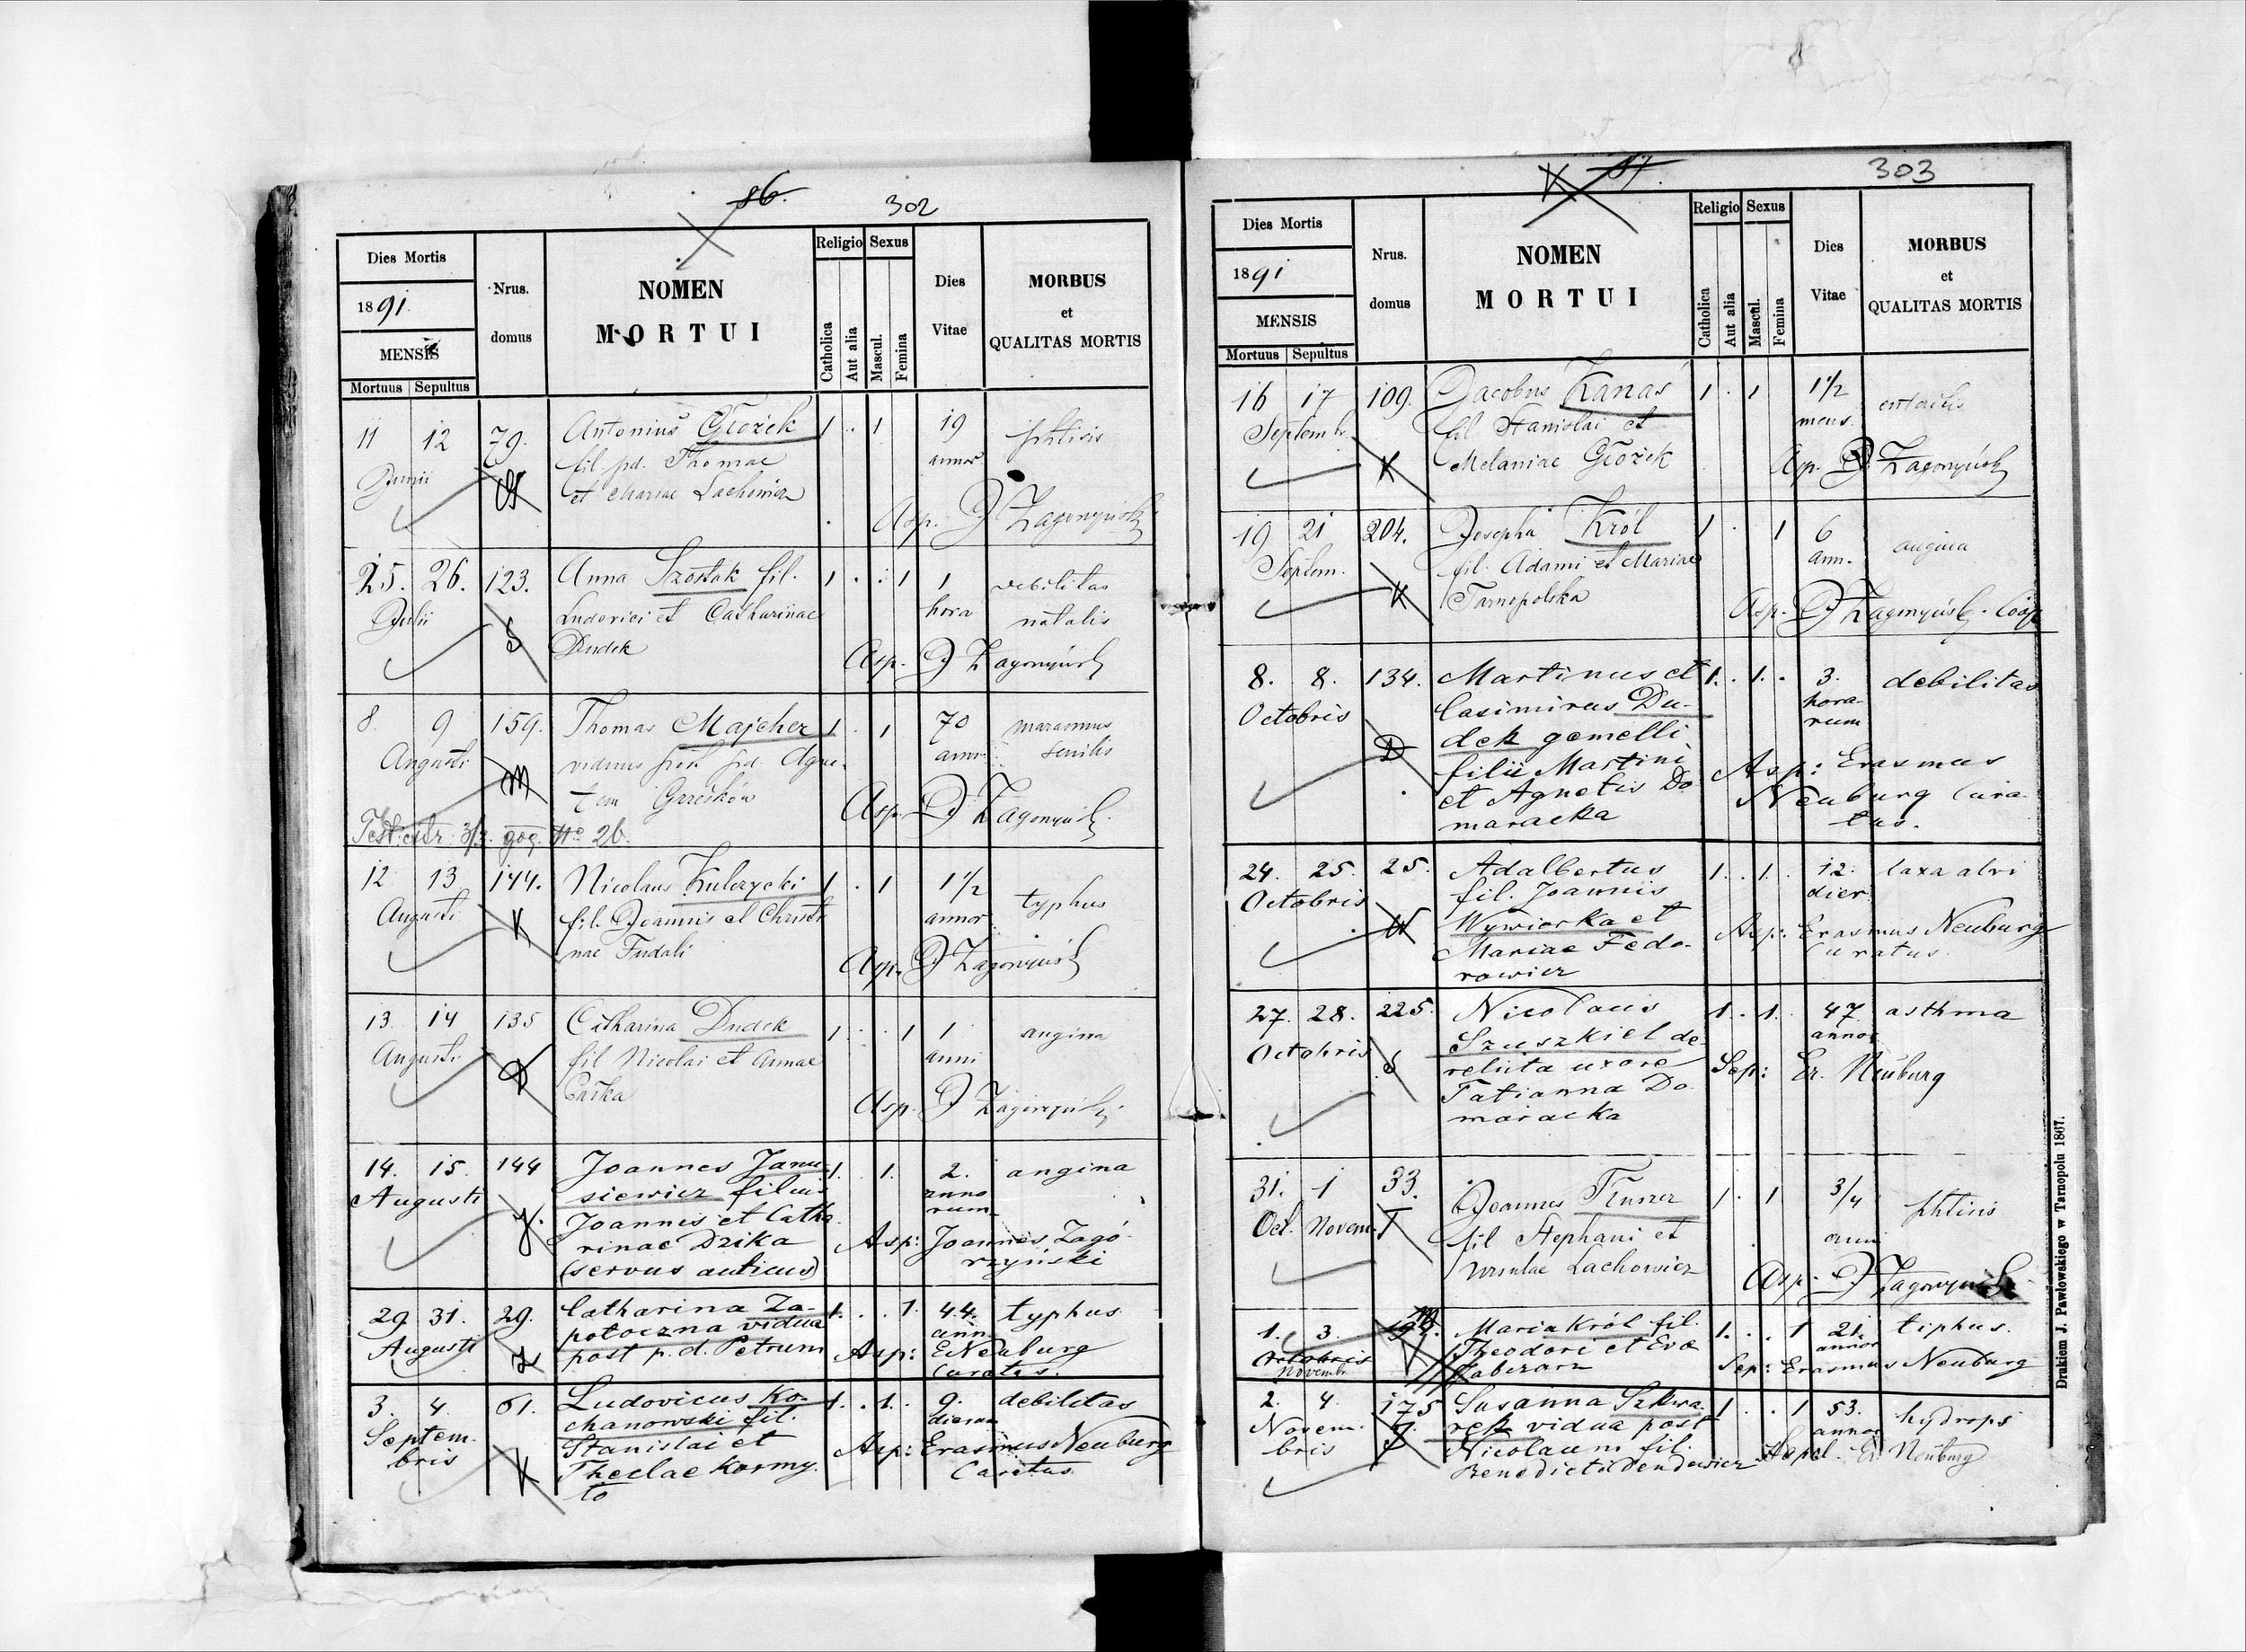 86.
302
Dies Mortis
1891.
MENSIS
Mortuus Sepultus
Nrus. domus
NOMEN
MORTUI
Religio Sexus
Catholica Aut alia Mascul. Femina
Dies Vitae
MORBUS
et
QUALITAS MORTIS
11 12 79. Antonius Głożek 1 . 1 19 phtisis
Junii fil. pd. Thomae annor.
et Mariae Lachowicz
Asp. J Zagórzyński
25. 26. 123. Anna Szostak fil. 1 . . 1 1 debilitas
Julii Ludovici et Catharinae hora natalis
Dudek
Asp. J Zagórzyński
8 9 159. Thomas Majcher 1 . 1 70 marasmus
Augusti viduus post pd. Agne- annor. senilis
tem
Asp. J Zagórzyński
No 26.
12 13 144. Nicolaus Kulczycki 1 . 1 1 1/2 typhus
Augusti fil. Joannis et Christi annor.
nae Fudali
Asp. J Zagórzyński
13. 14 135 Catharina Dudek 1 . . 1 1 angina
Augusti fil Nicolai et Annae anni
Asp. J Zagórzyński
14. 15. 144 Joannes Janu- 1. 1. 2. angina
Augusti siewicz filius anno
Joannis et Catha rum
rinae Dzika Asp: Joannes Zagó-
(servus auticus) rzyński
29. 31. 29. Catharina Za- 1. . . 1. 44. typhus
Augusti potoczna vidua ann.
post p. d. Petrum Asp: E Neuburg
Curatus.
3. 4. 61. Ludovicus Ko- 1. . 1. 9. debilitas
Septem- chanowski fil. dierum
bris Stanislai et Asp: Erasmus Neuburg
Theclae Kormy- Curatus
to
87.
303
Dies Mortis
1891
MENSIS
Mortuus Sepultus
Nrus. domus
NOMEN
MORTUI
Religio Sexus
Catholica Aut alia Mascul. Femina
Dies Vitae
MORBUS
et
QUALITAS MORTIS
16 17 109. Jacobus Kanas 1 . 1 1 1/2
Septembr. fil Stanislai et mens.
Melaniae Głożek Asp. J. Zagórzyński
19 21 204. Josepha Król 1 . 1 6 angina
Septem. fil. Adami et Mariae ann.
Tarnopolska Asp. J. Zagórzyński Coop
8. 8. 134. Martinus et 1. . 1. . 3. debilitas
Octobris Casimirus Du- hora-
dek gemelli rum
filii Martini Asp: Erasmus
et Agnetis Do- Neuburg Cura-
maracka tus.
24. 25. 25. Adalbertus 1. . 1. 12. laxa alvi
Octobris fil. Joannis dier.
Wywiorka et Asp: Erasmus Neuburg
Mariae Fedo- Curatus.
rowicz
27. 28. 225. Nicolaus 1. . 1. 47 asthma
Octobris Szuszkiel de- annor
relicta uxore Sep: Er. Neuburg
Tatianna Do-
maracka
31. 1 33. Joannes 1 . 1 3/4 phtisis
Oct. Novem. fil Stephani et anni
Ursulae Lachowicz
Asp. J Zagórzyński
1. 3. Maria Król fil. 1. . . 1 21. tiphus.
Octobris Theodori et Evae annor
Novembr. Sep: Erasmus Neuburg
2. 4. 175 Susanna Szkwa- 1. . . 1 53. hydrops
Novem- rek vidua post annor
bris Nicolaum fil. Sepel. Er. Neuburg
Benedicti Dendewicz
Drukiem J. Pawłowskiego w Tarnopolu 1867.